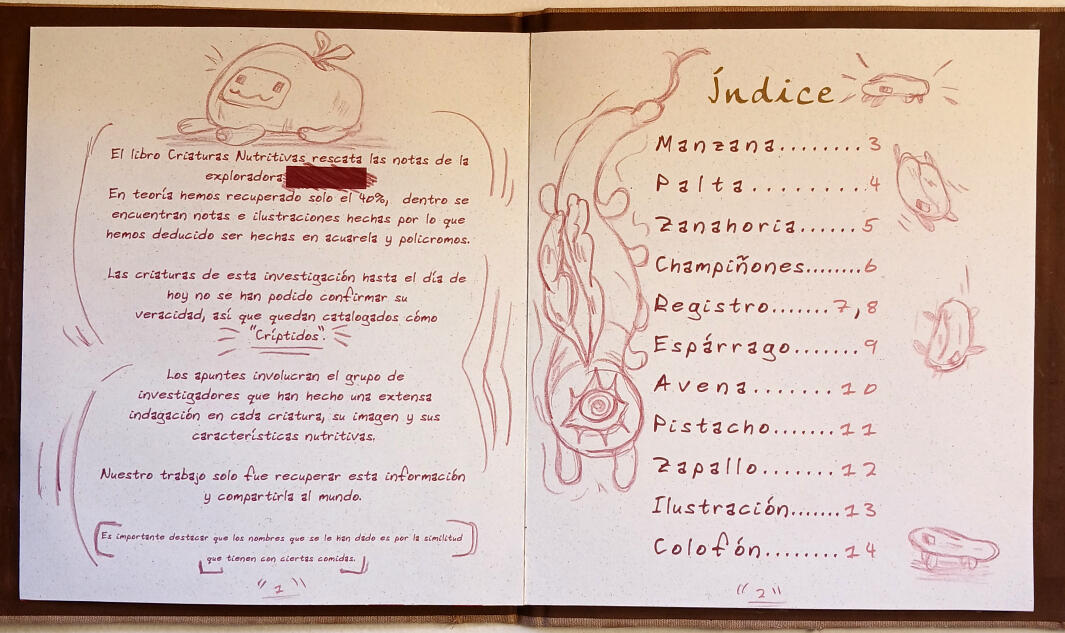 El libro Criaturas Nutritivas rescata las notas de la
exploradora
En teoría hemos recuperado solo el 40%, dentro se
encuentran notas e ilustraciones hechas por lo que
hemos deducido ser hechas en acuarela y policromos.
Las criaturas de esta investigación hasta el día de
hoy no se han podido confirmar su
veracidad, así que quedan catalogados cómo
"Críptidos".
Los apuntes involucran el grupo de
investigadores que han hecho una extensa
indagación en cada criatura, su imagen y sus
características nutritivas.
Nuestro trabajo solo fue recuperar esta información
y compartirla al mundo.
Es importante destacar que los nombres que se le han dado es por la similitud
que tienen con ciertas comidas.
1
Índice
Manzana........3
Palta.........4
Zanahoria......5
Champiñones........6
Registro.......7,8
Espárrago.......9
Avena........10
Pistacho.......11
Zapallo.......12
Ilustración.......13
Colofón........14
2